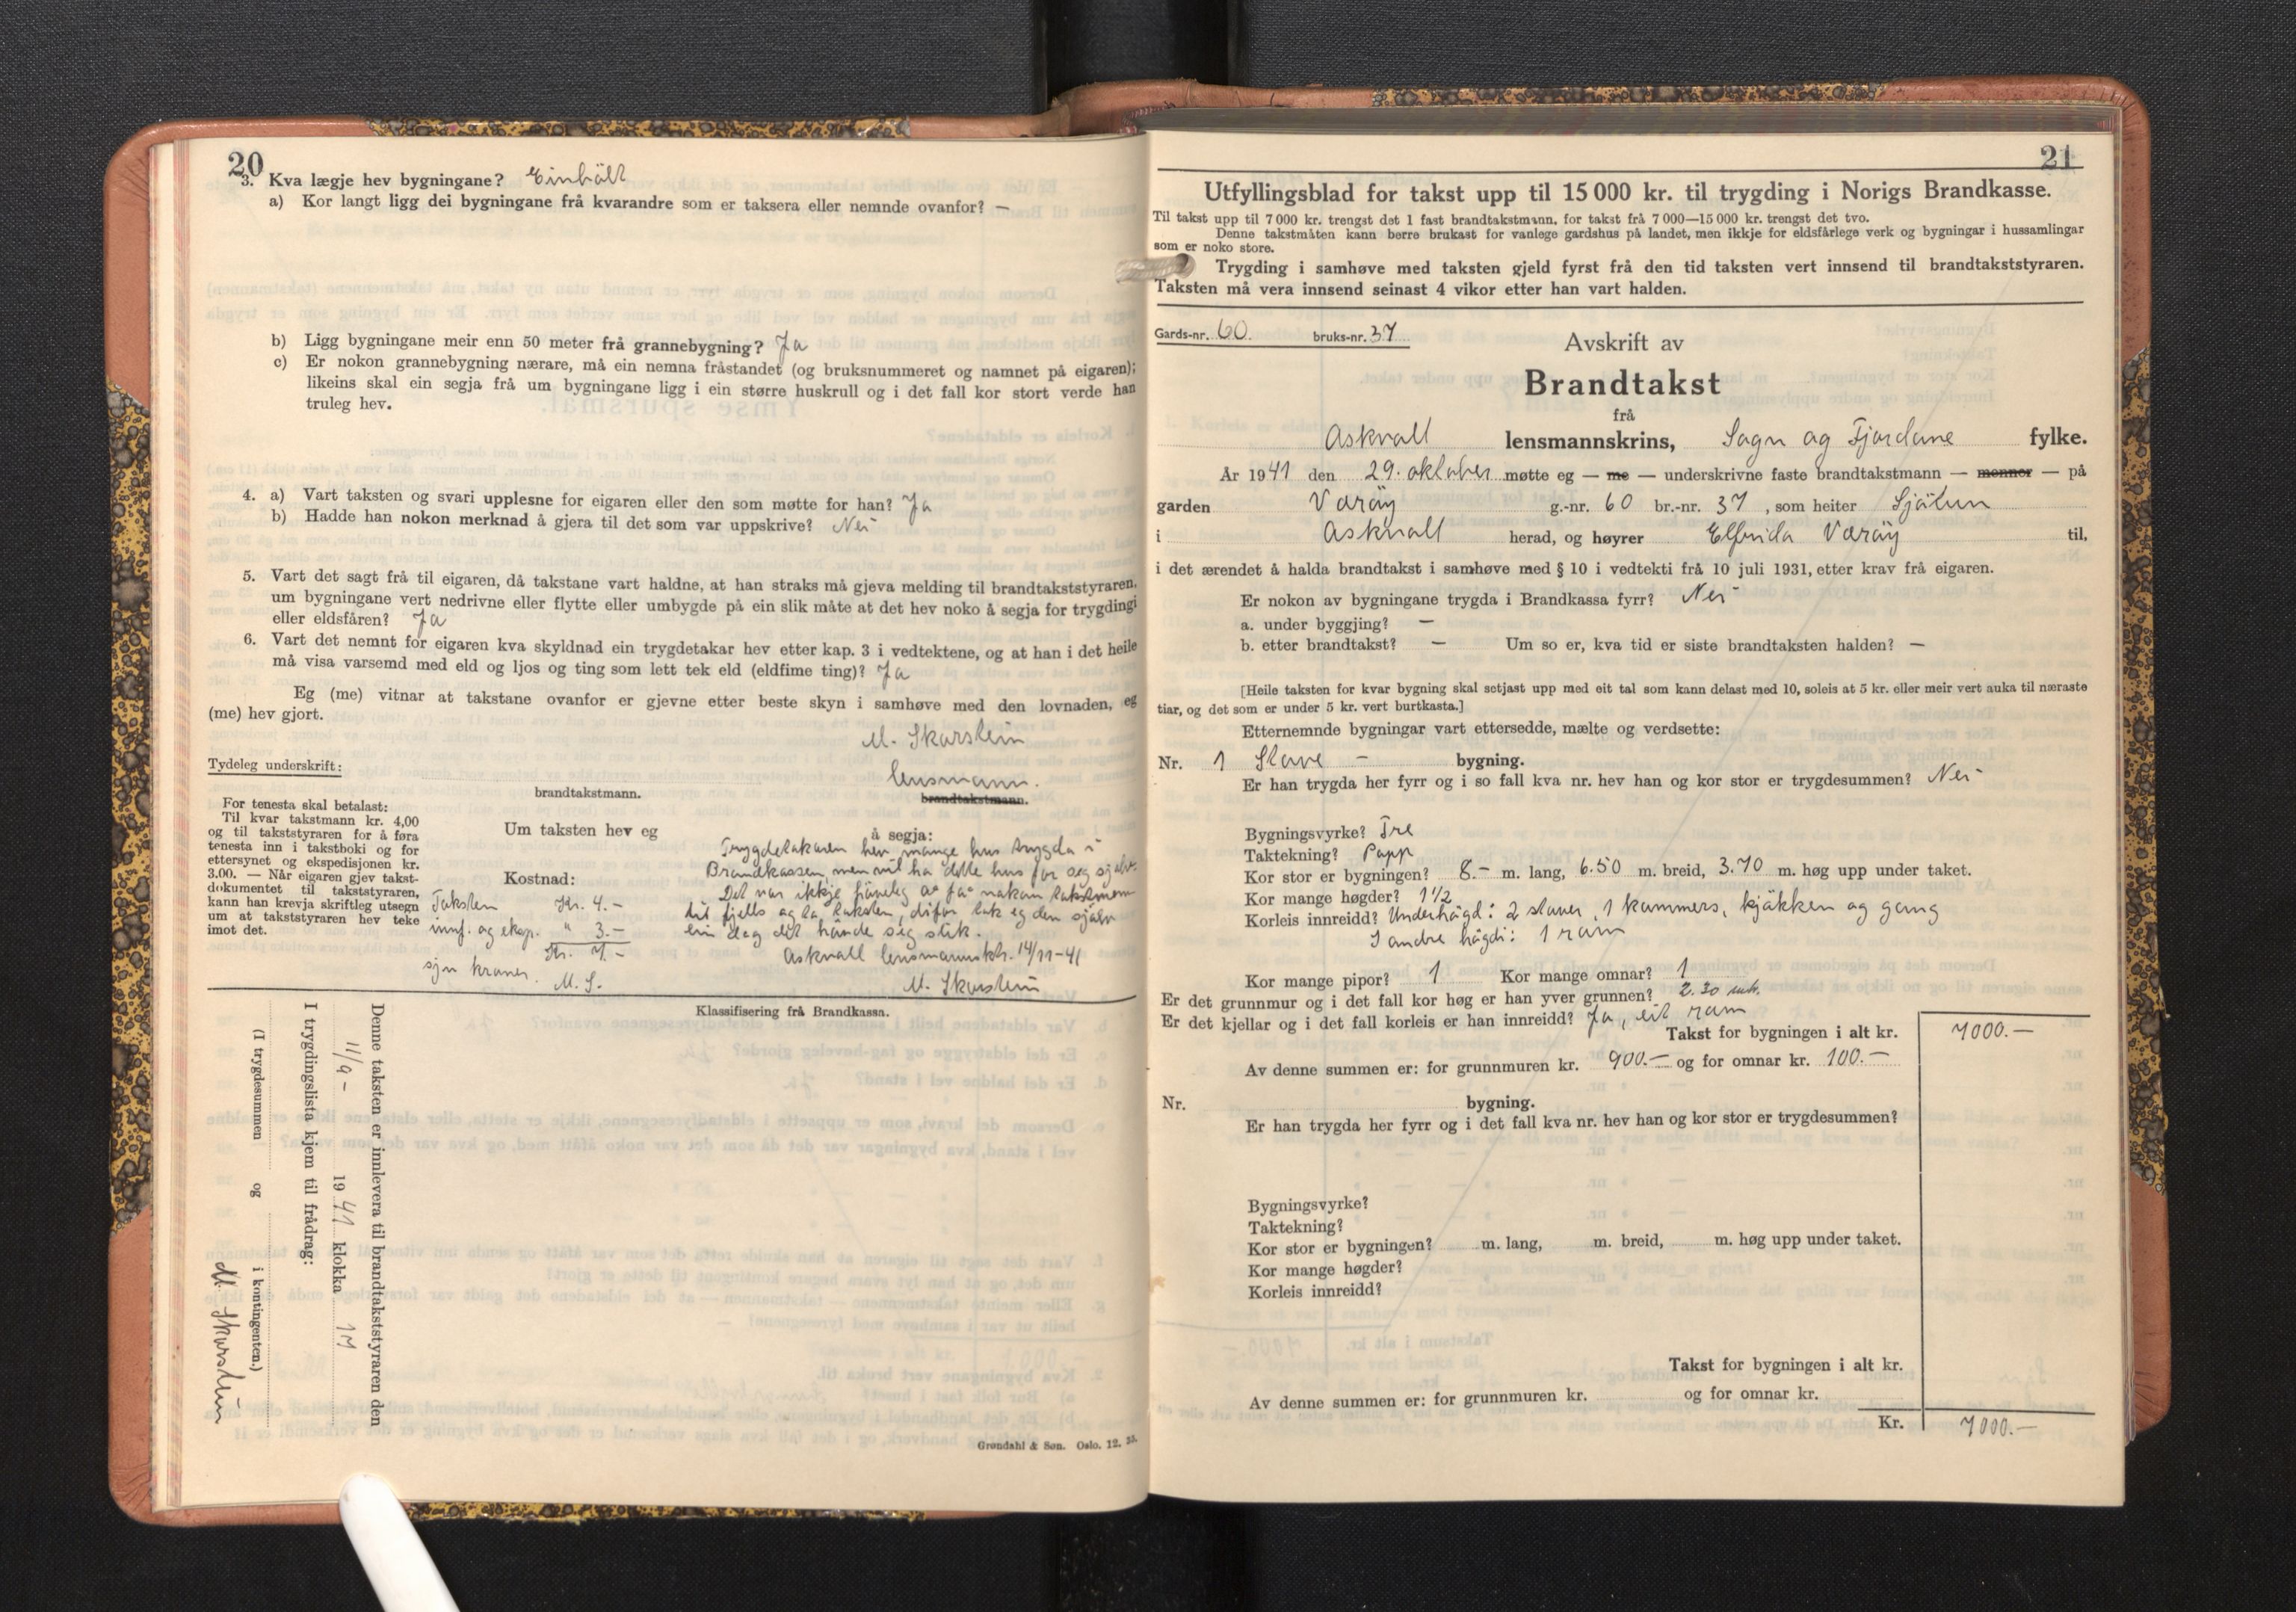 20
3. Kva lægje hev bygningane? Einbölt
a) Kor langt ligg dei bygningane frå kvarandre som er taksera eller nemnde ovanfor? —
b) Ligg bygningane meir enn 50 meter frå grannebygning? Ja
c) Er nokon grannebygning nærare, må ein nemna fråstandet (og bruksnummeret og namnet på eigaren);
likeins skal ein segja frå um bygningane ligg i ein større huskrull og i det fall kor stort verde han
truleg hev.
4. a) Vart taksten og svari upplesne for eigaren eller den som møtte for han? Ja
b) Hadde han nokon merknad å gjera til det som var uppskrive? Nei
5. Vart det sagt frå til eigaren, då takstane vart haldne, at han straks må gjeva melding til brandtakststyraren,
um bygningane vert nedrivne eller flytte eller umbygde på ein slik måte at det hev noko å segja for trygdingi
eller eldsfåren? Ja
6. Vart det nemnt for eigaren kva skyldnad ein trygdetakar hev etter kap. 3 i vedtektene, og at han i det heile
må visa varsemd med eld og ljos og ting som lett tek eld (eldfime ting)? Ja
Eg (me) vitnar at takstane ovanfor er gjevne etter beste skyn i samhøve med den lovnaden, eg
(me) hev gjort.
M. Skarstein
Tydeleg underskrift:
lensmann.
brandtakstmann.
brandtakstmann.
For tenesta skal betalast:
Til kvar takstmann kr. 4,00
og til takststyraren for å føra
tenesta inn i takstboki og for
ettersynet og ekspedisjonen kr.
3.00. — Når eigaren gjev takst-
dokumentet til takststyraren,
kann han krevja skriftleg utsegn
um at takststyraren hev teke
imot det.
Um taksten hev eg
å segja:
Trygdetakaren hev mange hus trygda i
Brandkassen, men vil ha dette hus for seg sjølv.
Det var ikkje råd å få nakon takstmenn
til fjells og ta taksten, difor tok eg den sjølv
ein dag det hände seg slik.
Askvoll lensmannsktr. 14/11-41
M. Skarstein
Kostnad:
Taksten Kr. 4.-
innf. og eksp. " 3.-
Kr. 7.-
sju kroner.
M. S.
Klassifisering frå Brandkassa.
Denne taksten er innlevera til brandtakststyraren den
11/9- 1941 klokka 17
I trygdingslista kjem til frådrag:
(I trygdesummen og i kontingenten.)
M. Skarstein
Grøndahl & Søn. Oslo. 12.
21
Utfyllingsblad for takst upp til 15 000 kr. til trygding i Norigs Brandkasse.
Til takst upp til 7 000 kr. trengst det 1 fast brandtakstmann, for takst frå 7 000—15 000 kr. trengst det tvo.
Denne takstmåten kann berre brukast for vanlege gardshus på landet, men ikkje for eldsfårlege verk og bygningar i hussamlingar
som er noko store.
Trygding i samhøve med taksten gjeld fyrst frå den tid taksten vert innsend til brandtakststyraren.
Taksten må vera innsend seinast 4 vikor etter han vart halden.
Gards-nr. 60. bruks-nr. 37
Avskrift av
Brandtakst
frå
Askvoll lensmannskrins, Sogn og Fjordane fylke.
År 1941 den 29. oktober møtte eg — me — underskrivne faste brandtakstmann — menner — på
garden Værøy g.-nr. 60 br.-nr. 37, som heiter Sjötun
i Askvoll herad, og høyrer Elfrida Værøy til,
i det ærendet å halda brandtakst i samhøve med § 10 i vedtekti frå 10 juli 1931, etter krav frå eigaren.
Er nokon av bygningane trygda i Brandkassa fyrr? Nei
a. under byggjing? —
b. etter brandtakst? — Um so er, kva tid er siste brandtaksten halden? —
[Heile taksten for kvar bygning skal setjast upp med eit tal som kann delast med 10, soleis at 5 kr. eller meir vert auka til næraste
tiar, og det som er under 5 kr. vert burtkasta.]
Etternemnde bygningar vart ettersedde, mælte og verdsette:
Nr. 1 Stove - bygning.
Er han trygda her fyrr og i so fall kva nr. hev han og kor stor er trygdesummen? Nei
Bygningsvyrke? Tre
Taktekning? Papp
Kor stor er bygningen? 8.- m. lang, 6.50 m. breid, 3.70 m. høg upp under taket.
Kor mange høgder? 1½
Korleis innreidd? Underhögd: 2 stover, 1 kammers, kjökken og gang
I andre högdi: 1 rom
Kor mange pipor? 1 Kor mange omnar? 1
Er det grunnmur og i det fall kor høg er han yver grunnen? 2.30 mtr.
Er det kjellar og i det fall korleis er han innreidd? Ja, eit rom
Takst for bygningen i alt kr. 7000.—
Av denne summen er: for grunnmuren kr. 900.— og for omnar kr. 100.—
Nr. bygning.
Er han trygda her fyrr og i det fall kva nr. hev han og kor stor er trygdesummen?
Bygningsvyrke?
Taktekning?
Kor stor er bygningen? m. lang, m. breid, m. høg upp under taket.
Kor mange høgder?
Korleis innreidd?
Takst for bygningen i alt kr.
Av denne summen er: for grunnmuren kr. og for omnar kr.
Kr. 7000.—